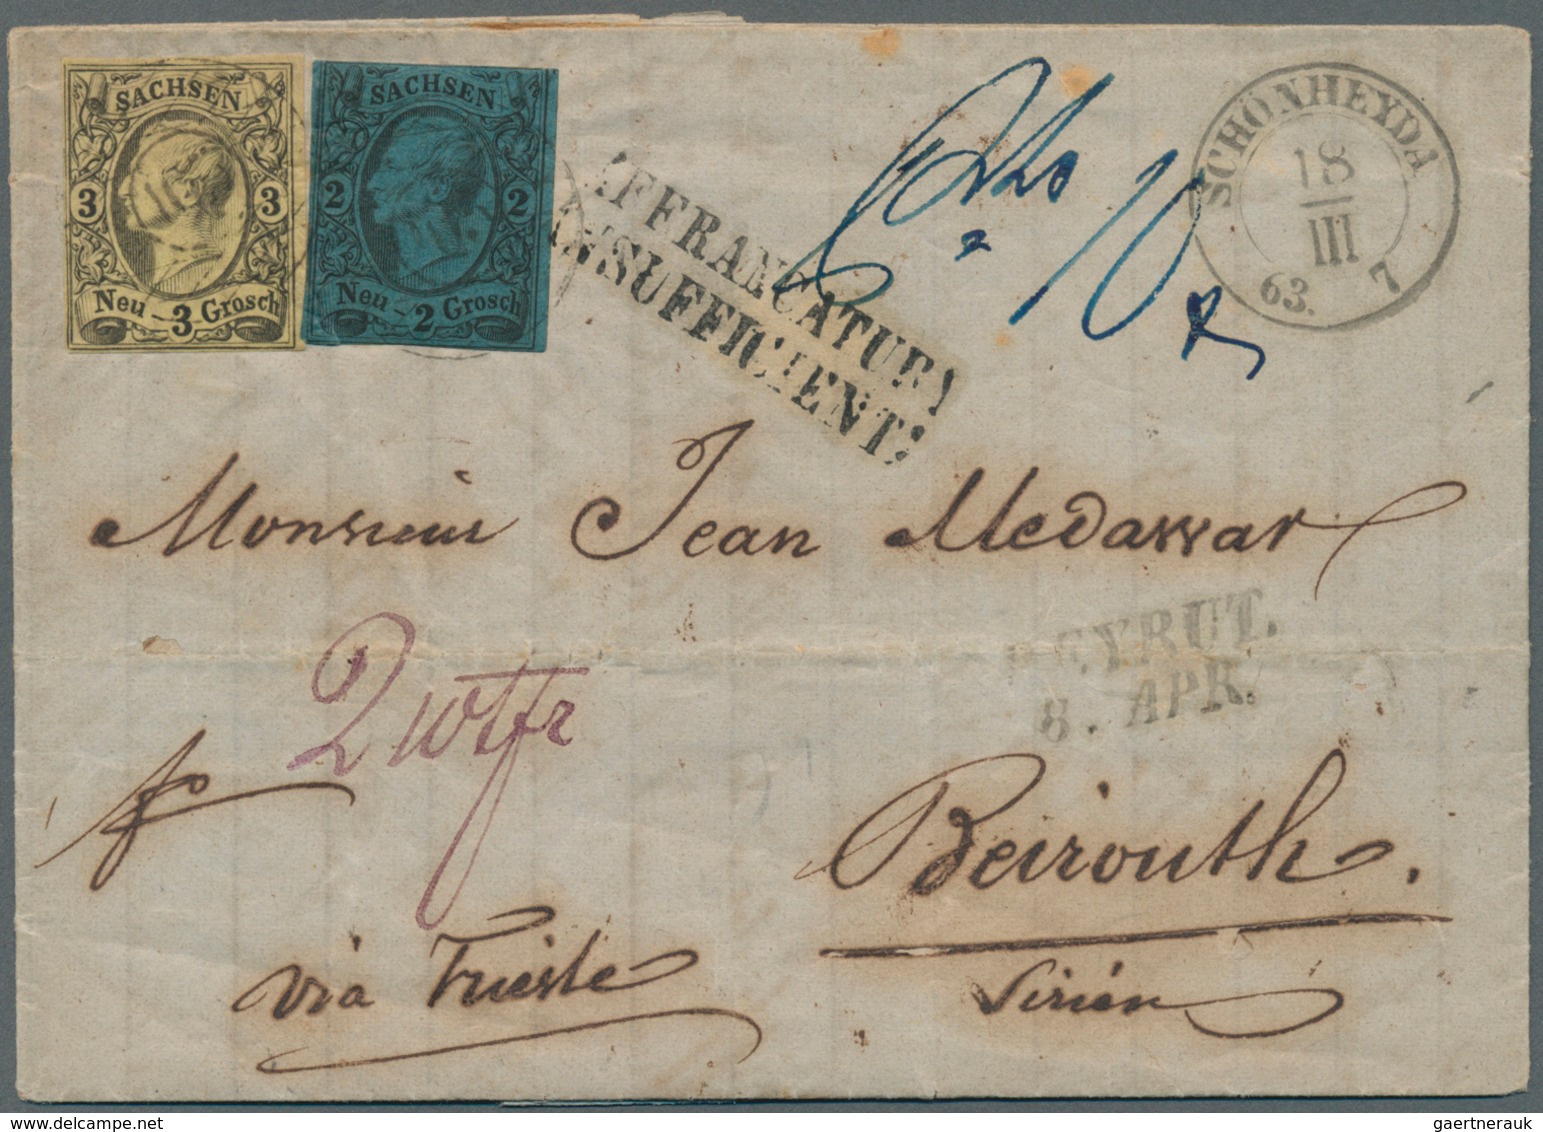 SACHSEN
3 3
Neu - 3 Grosch
SACHSEN
2 2
Neu - 2 Grosch
AFFRANCATUR!
INSUFFICIENT:
SCHÖNHEYDA
18
III
63. 7
Monsieur Jean Medawar
BEYRUT.
8. APR.
2 wtfr
fro
Beirouth.
via Trieste
Sirién
gaertnerauk@yahoo.com